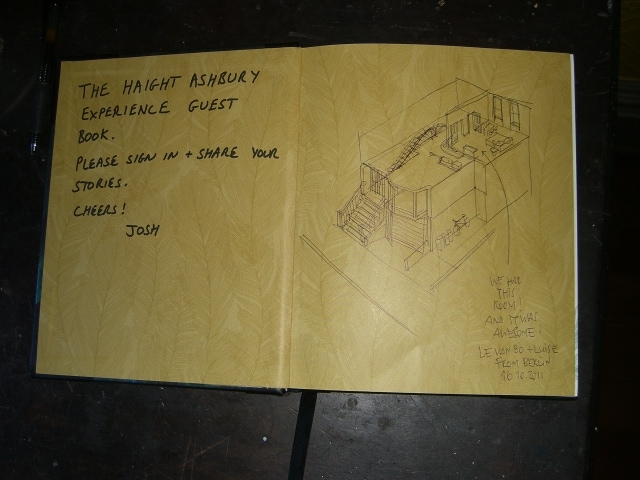 THE HAIGHT ASHBURY
EXPERIENCE GUEST
BOOK.
PLEASE SIGN IN + SHARE YOUR
STORIES.
CHEERS!
JOSH
WE HAD
THIS
ROOM!
AND IT WAS
AWESOME.
LE VAN BO + LUISE
FROM BERLIN
16.10.2011